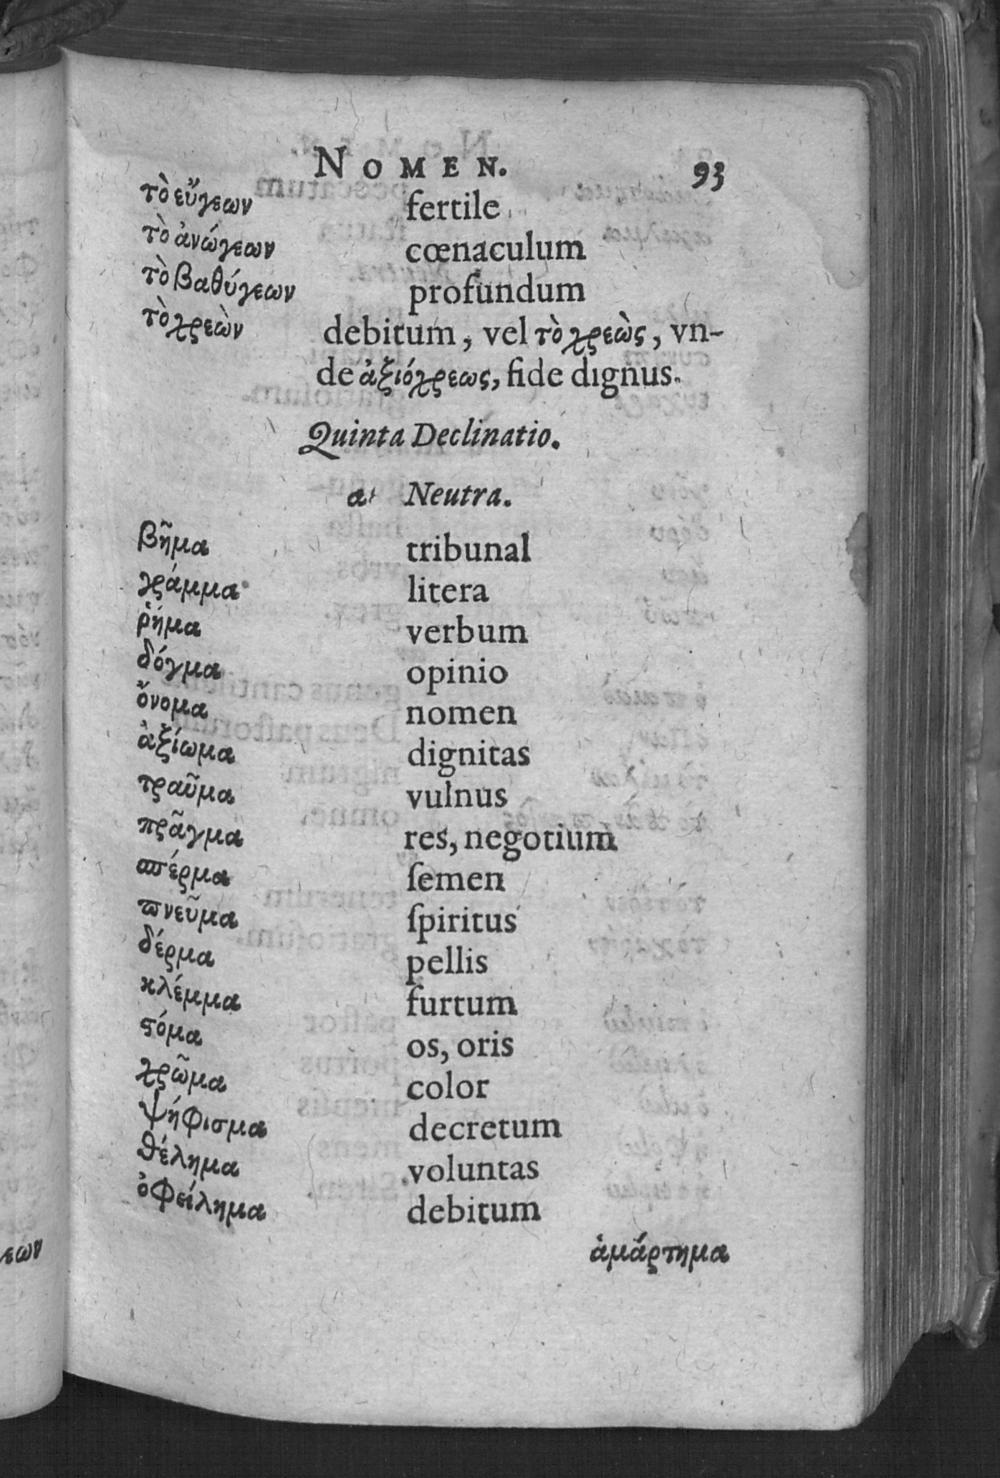 NOMEN. 93
τὸ εὔγεων fertile
τὸ ἀνώγεων cœnaculum
τὸ βαθύγεων profundum
τὸ χρεὼν debitum, vel τὸ χρεὼς, vn-
de ἀξιόχρεως, fide dignus.
Quinta Declinatio.
α Neutra.
βῆμα tribunal
γράμμα litera
ῥῆμα verbum
δόγμα opinio
ὄνομα nomen
ἀξίωμα dignitas
τραῦμα vulnus
πρᾶγμα res, negotium
σπέρμα ſemen
πνεῦμα ſpiritus
δέρμα pellis
κλέμμα furtum
ϛόμα os, oris
χρῶμα color
ψήφισμα decretum
θέλημα voluntas
ὀφείλημα debitum
ἁμάρτημα
εων